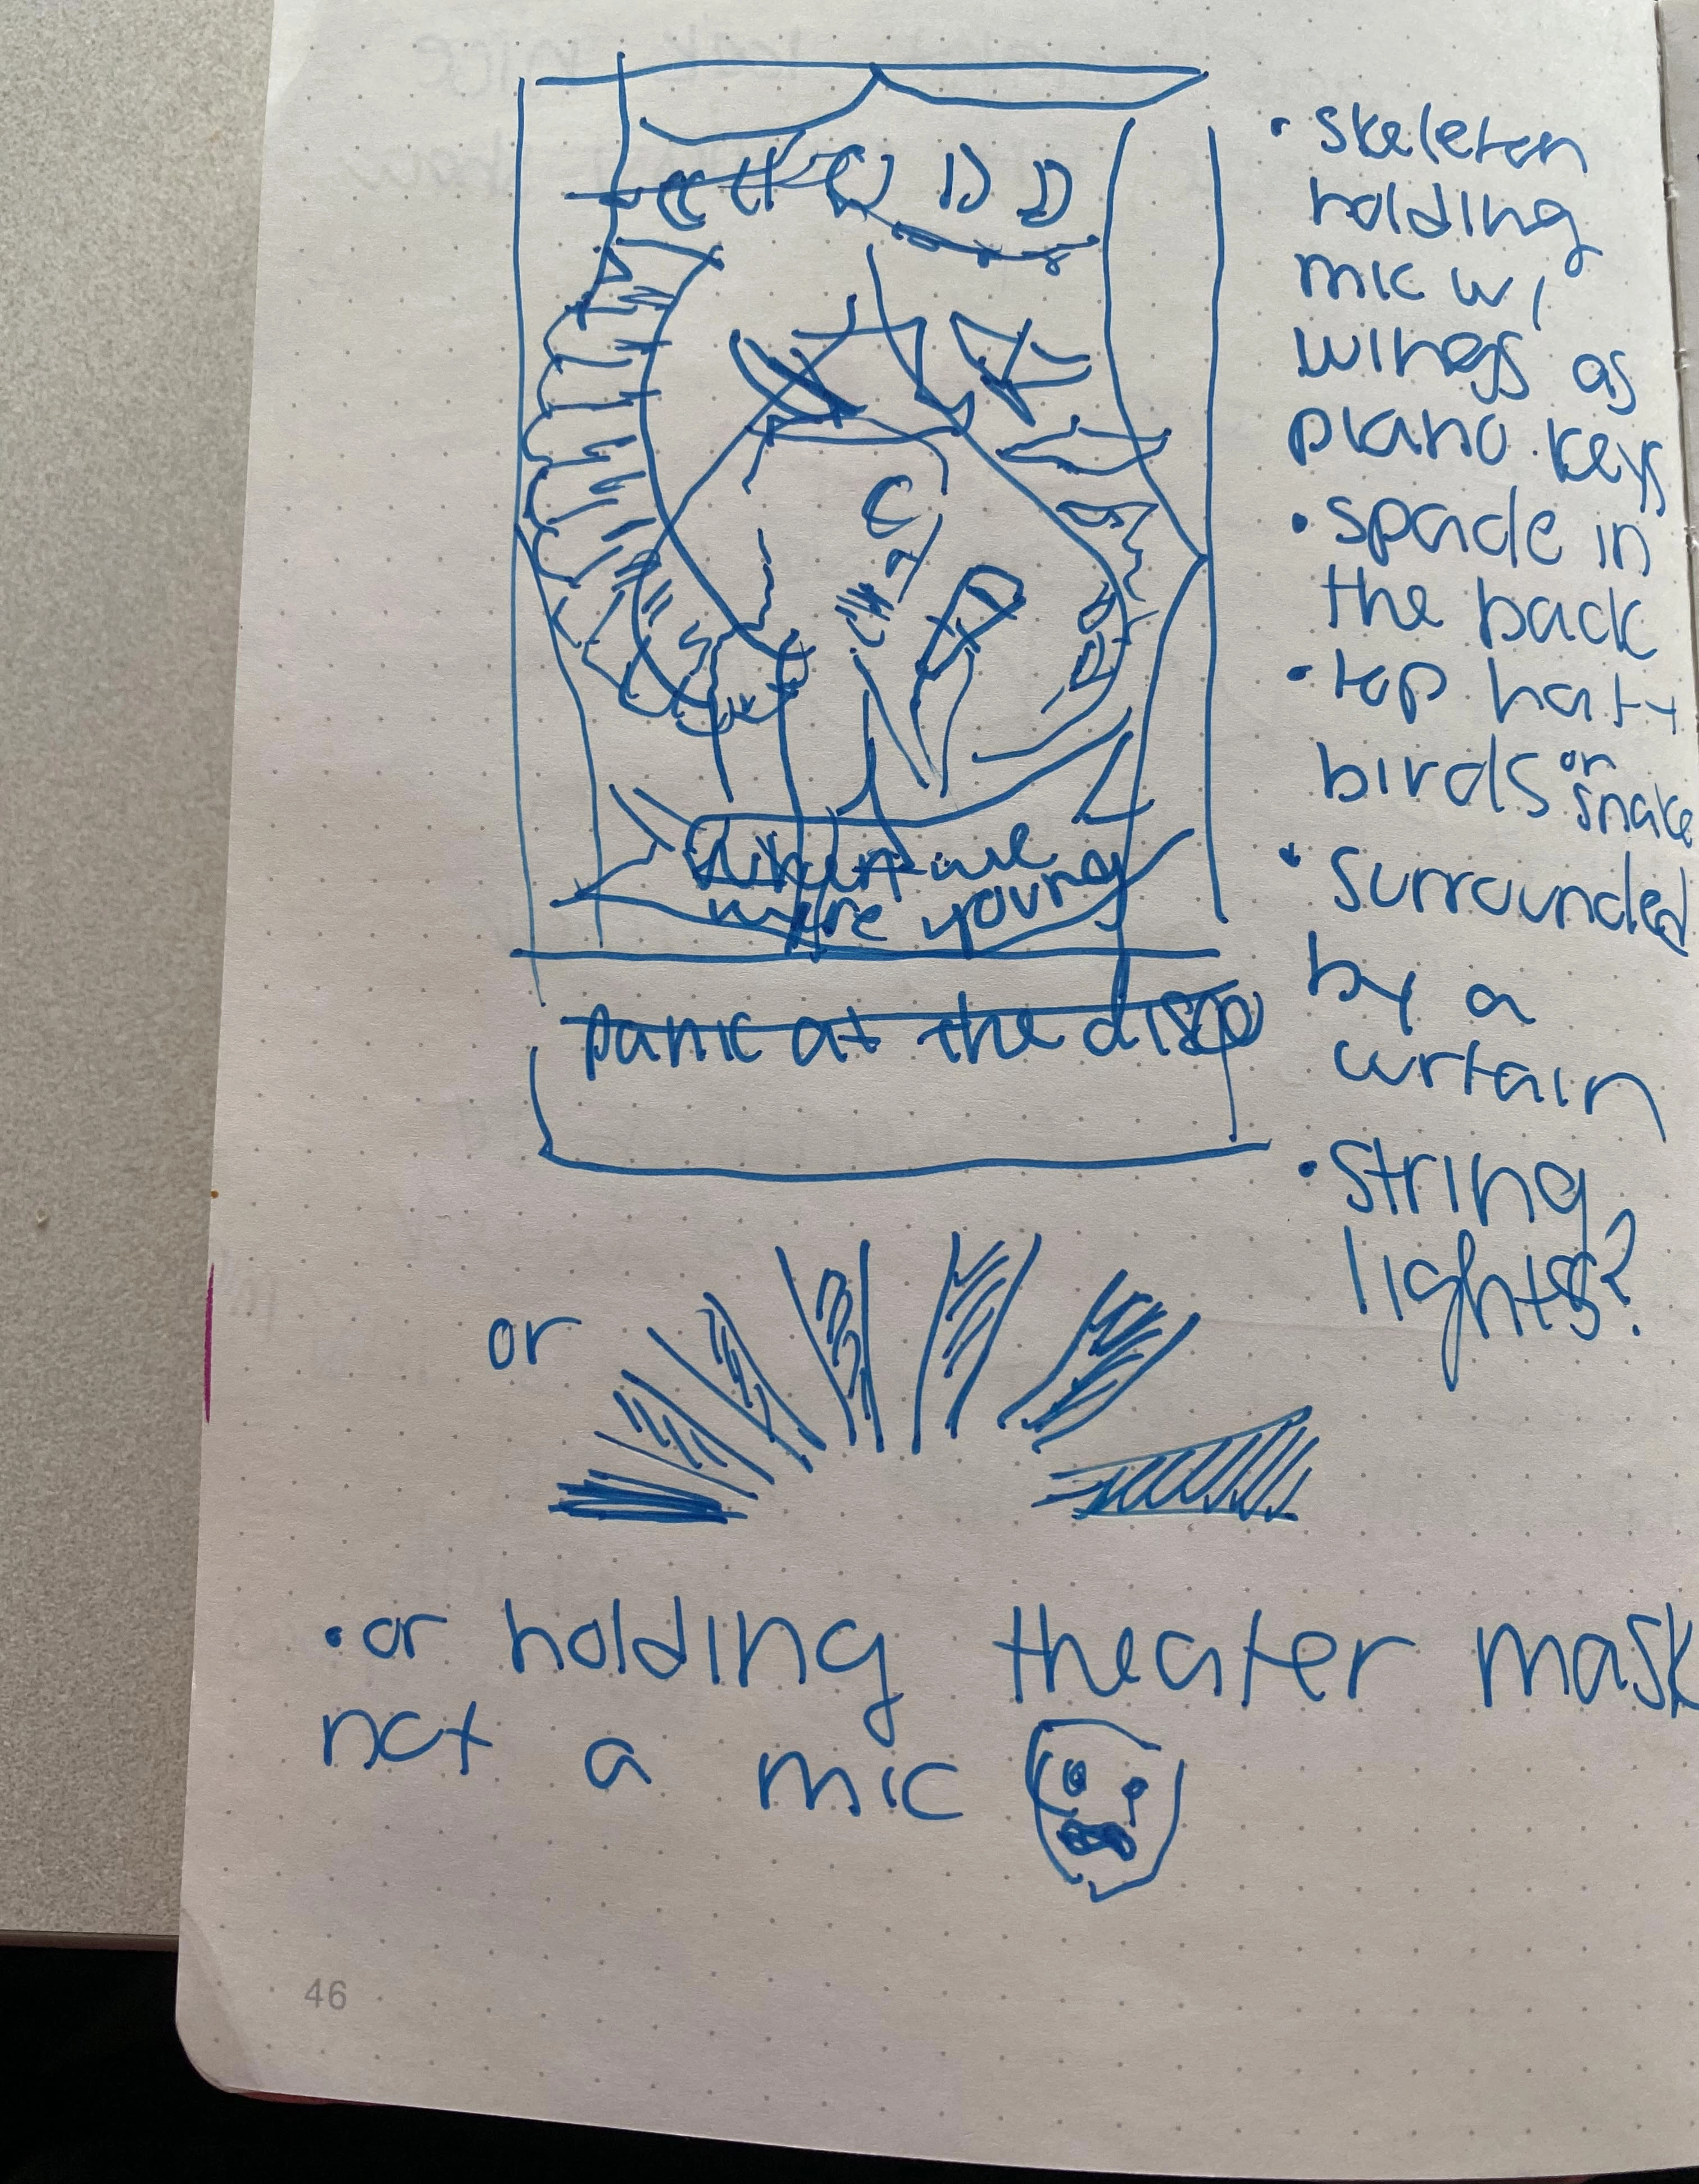 when we
were young
panic at the disco
• skeleton
holding
mic w/
wings as
piano keys
• spade in
the back
• top hat +
birds or
snake
• surrounded
by a
curtain
• string
lights?
or
• or holding theater mask
not a mic
46